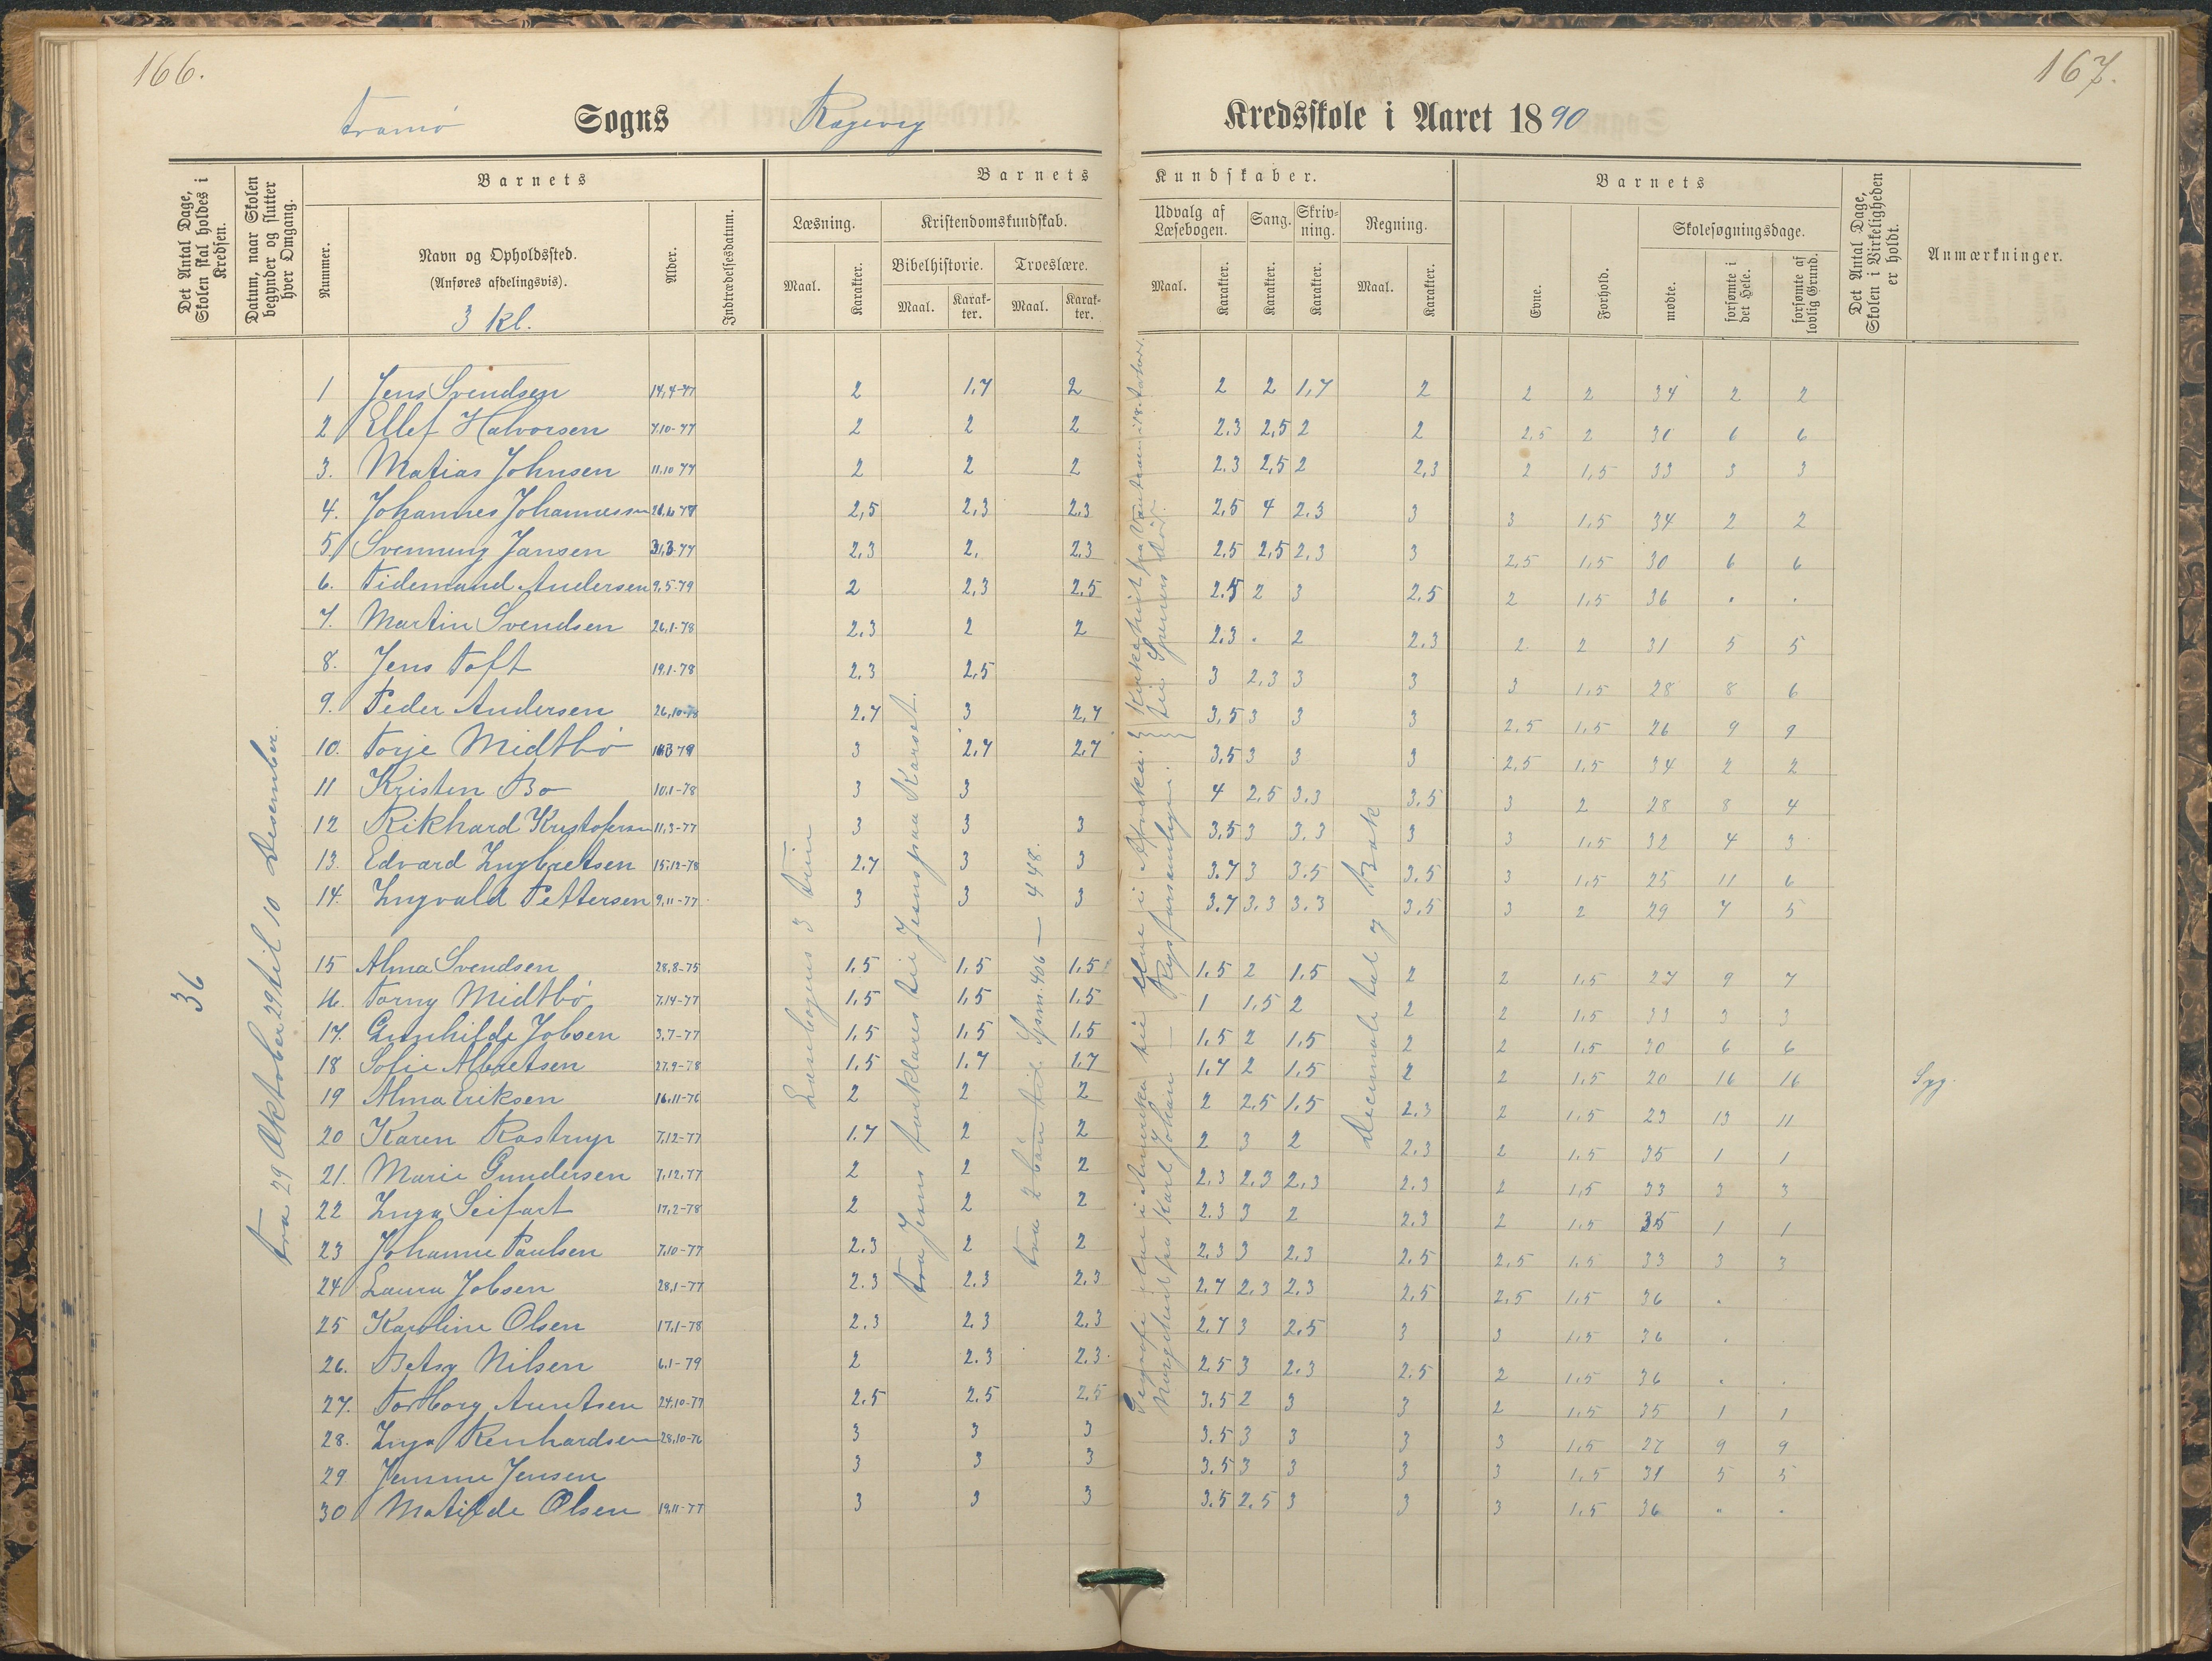 166.
167.
Tromø Sogns Rægevig Kredsskole i Aaret 1890
Det Antal Dage, Skolen skal holdes i Kredsen.
Datum, naar Skolen begynder og slutter hver Omgang.
Barnets
Nummer.
Navn og Opholdssted.
(Anføres afdelingsvis).
3 kl.
Alder.
Indtrædelsesdatum.
Barnets Kundskaber.
Læsning.
Maal.
Karakter.
Kristendomskundskab.
Bibelhistorie.
Maal.
Karakter.
Troeslære.
Maal.
Karakter.
Udvalg af Læsebogen.
Maal.
Karakter.
Sang.
Karakter.
Skrivning.
Karakter.
Regning.
Maal.
Karakter.
Barnets
Evne.
Forhold.
Skolesøgningsdage.
mødte.
forsømte i det Hele.
forsømte af lovlig Grund.
Det Antal Dage, Skolen i Virkeligheden er holdt.
Anmærkninger.
36
fra 29 Oktober 29 til 10 Desember.
Læsebogens 3 trin
fra Jesus forklares til Jesus paa Korset.
Spm. 406 — 448.
Decimaltal og Brøk
1 Jens Svendsen 14,4-77 2 1,7 2 2 2 1,7 2 2 2 34 2 2
2 Ellef Halvorsen 7.10-77 2 2 2 2.3 2,5 2 2 2,5 2 30 6 6
3. Matias Johnsen 11.10 77 2 2 2 2.3 2,5 2 2,3 2 1,5 33 3 3
4. Johannes Johannessen 2,5 2,3 2.3 2,5 4 2.3 3 3 1,5 34 2 2
5 Svenning Jansen 2.3 2. 2.3 2.5 2,5 2.3 3 2,5 1,5 30 6 6
6. Tidemand Andersen 9.5-79 2 2,3 2.5 2.5 2 3 2.5 2 1,5 36 . .
7. Martin Svendsen 26,1-78 2.3 2 2 2.3 . 2 2.3 2 2 31 5 5
8. Jens Toft 19.1-78 2.3 2,5 3 2.3 3 3 3 1,5 28 8 6
9. Peder Andersen 26,10-78 2.7 3 2,7 3,5 3 3 3 2.5 1,5 26 9 9
10. Torje Midtbø 3 2,7 2.7 3,5 3 3 3 2,5 1,5 34 2 2
11 Kristen Bo 10.1-78 3 3 4 2.5 3.3 3.5 3 2 28 8 4
12 Rikhard Kristofersen 11,3-77 3 3 3 3,5 3 3.3 3 3 1,5 32 4 3
13. Edvard Ingbretsen 15.12-78 2.7 3 3 3.7 3 3.5 3.5 3 1,5 25 11 6
14. Ingvald Pettersen 9,11-77 3 3 3 3.7 3.3 3.3 3.5 3 2 29 7 5
15 Alma Svendsen 28,8-75 1.5 1.5 1.5 1.5 2 1.5 2 2 1.5 27 9 7
16. Torny Midtbø 7.14-77 1.5 1,5 1.5 1 1.5 2 2 2 1.5 33 3 3
17. Gunhilde Jobsen 3,7-77 1.5 1.5 1.5 1.5 2 1.5 2 2 1.5 30 6 6
18 Sofie Albretsen 27.9-78 1.5 1.7 1.7 1.7 2 1.5 2 2 1.5 20 16 16 Syg.
19 Alma Eriksen 16.11-76 2 2 2 2 2.5 1.5 2.3 2 1.5 23 13 11
20 Karen Rastrup 7,12-77 1.7 2 2 2 3 2 2.3 2 1.5 35 1 1
21. Marie Gundersen 7,12.77 2 2 2 2.3 2.3 2.3 2.3 2 1,5 33 3 3
22 Inga Seifart 17,2-78 2 2 2 2.3 3 2 2.3 2 1.5 35 1 1
23 Johanne Paulsen 7.10-77 2.3 2 2 2.3 3 2.3 2.5 2,5 1.5 33 3 3
24 Laura Jobsen 28,1-77 2.3 2.3 2.3 2.7 2.3 2.3 2.5 2.5 1.5 36 .
25 Karoline Olsen 17,1-78 2.3 2.3 2.3 2.7 3 2.5 3 3 1.5 36 .
26. Betsy Nilsen 6.1-79 2 2.3 2.3 2.5 3 2.3 2.5 2 1.5 36 . .
27. Torborg Arentsen 24,10-77 2.5 2.5 2.5 3.5 2 3 3 2 1.5 35 1 1
28. Inga Renhardsen 28,10-76 3 3 3 3.5 3 3 3 3 1.5 27 9 9
29 Jensine Jensen 3 3 3 3.5 3 3 3 3 1.5 31 5 5
30 Matilde Olsen 19.11-77 3 3 3 3.5 2.5 3 3 3 1.5 36 " .